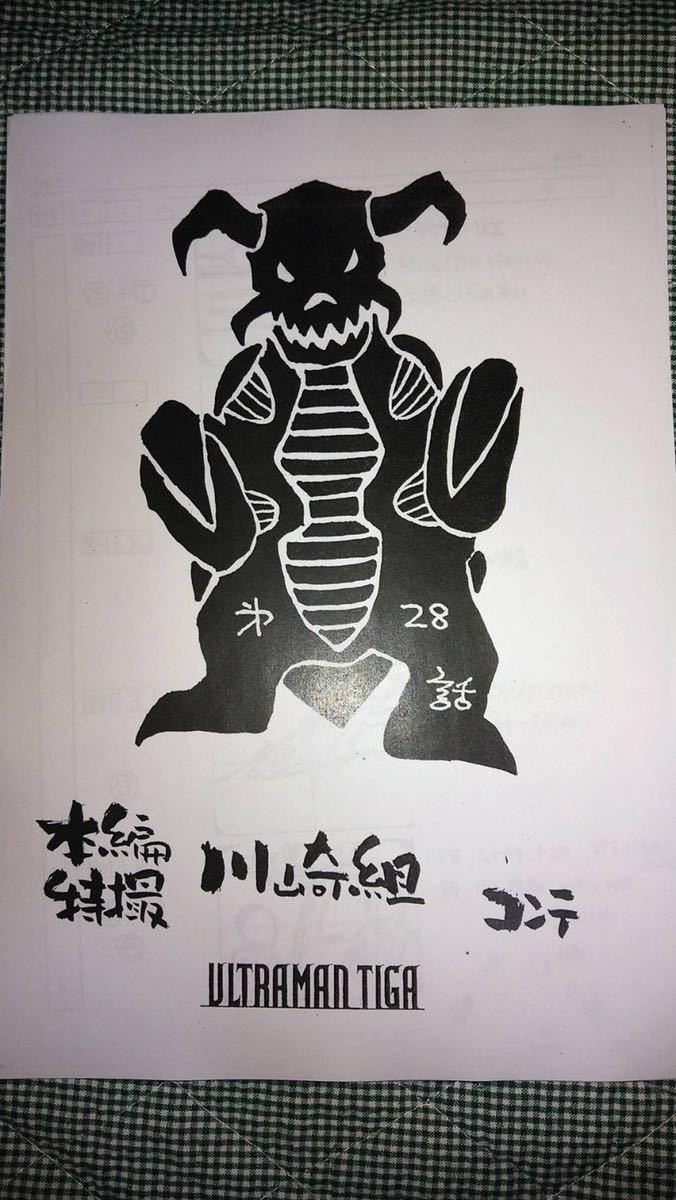 㐧 28
話
本編
特撮
川崎組
コンテ
ULTRAMAN TIGA